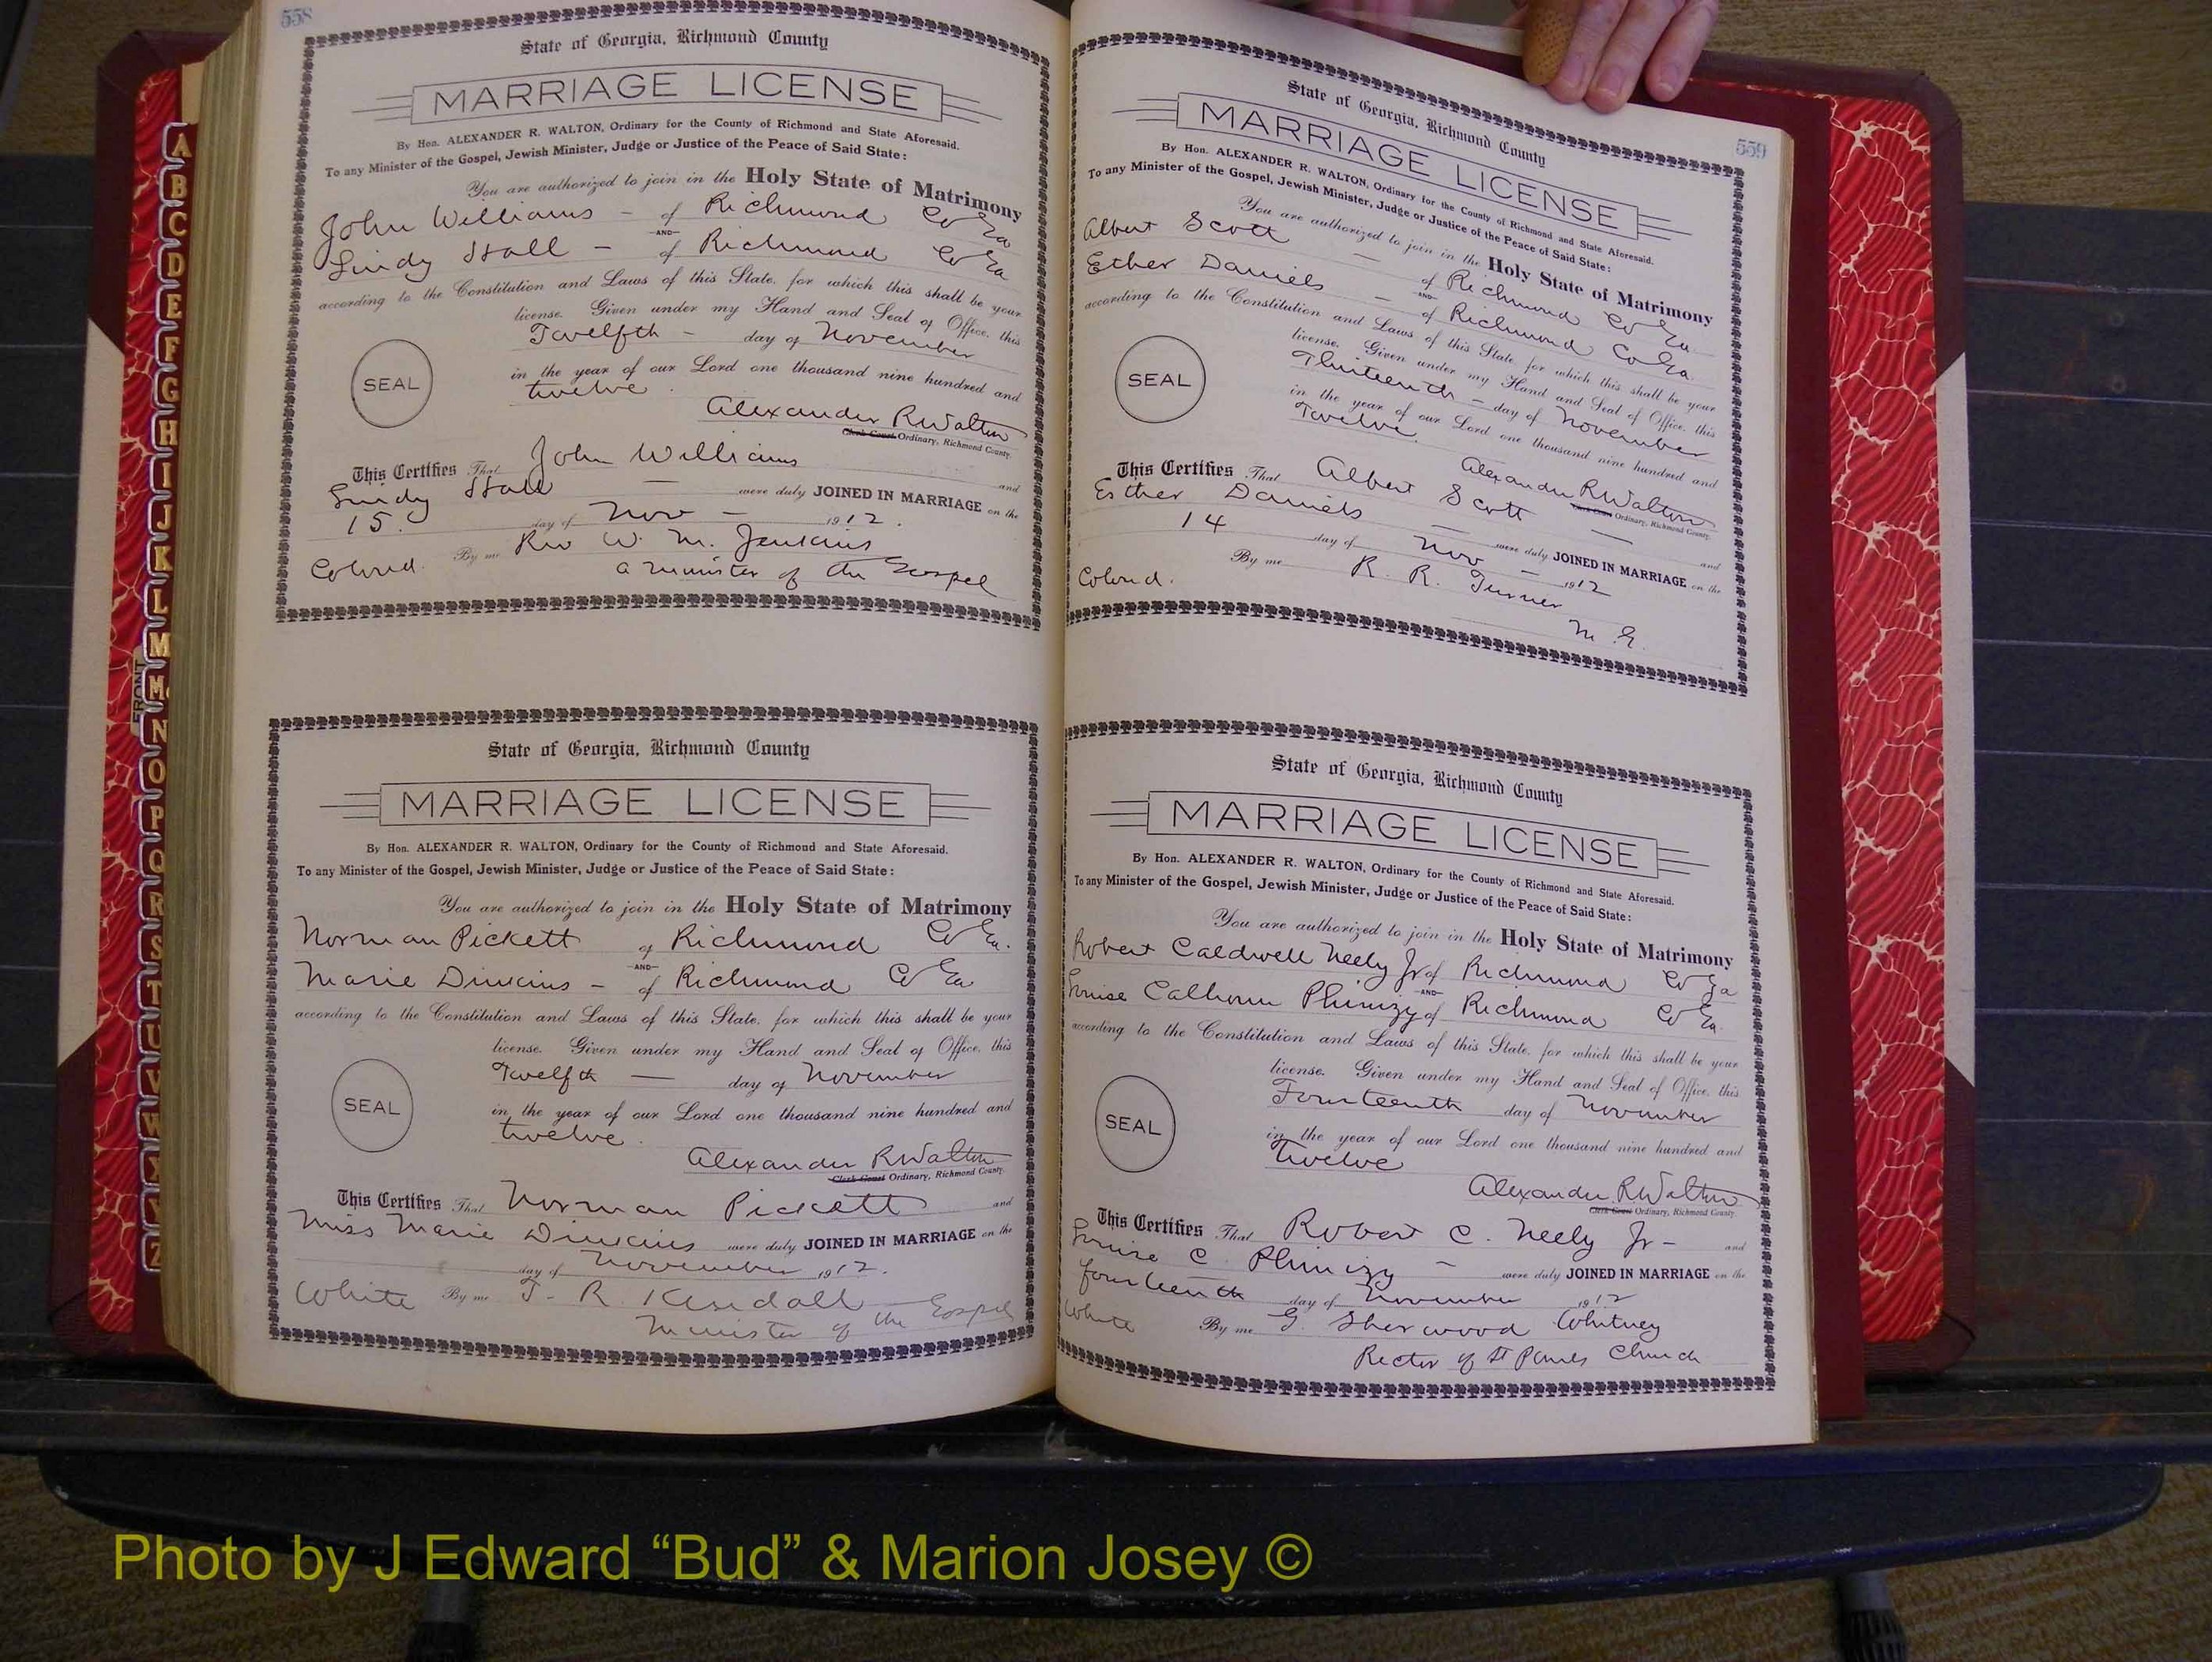 558
State of Georgia, Richmond County
MARRIAGE LICENSE
By Hon. ALEXANDER R. WALTON, Ordinary for the County of Richmond and State Aforesaid.
To any Minister of the Gospel, Jewish Minister, Judge or Justice of the Peace of Said State:
You are authorized to join in the Holy State of Matrimony
John Williams - of Richmond Co Ga
AND
Lindy Hall - of Richmond Co Ga
according to the Constitution and Laws of this State, for which this shall be your
license. Given under my Hand and Seal of Office, this
Twelfth - day of November
SEAL
in the year of our Lord one thousand nine hundred and
twelve.
Alexander R Walton
Clerk Court Ordinary, Richmond County.
This Certifies That John Williams and
Lindy Hall - were duly JOINED IN MARRIAGE on the
15. day of Nov - 1912.
Colored. By me Rev W. M. Jenkins
a minister of the Gospel
State of Georgia, Richmond County
MARRIAGE LICENSE
By Hon. ALEXANDER R. WALTON, Ordinary for the County of Richmond and State Aforesaid.
To any Minister of the Gospel, Jewish Minister, Judge or Justice of the Peace of Said State:
You are authorized to join in the Holy State of Matrimony
Norman Pickett of Richmond Co Ga.
AND
Marie Dinkins - of Richmond Co Ga
according to the Constitution and Laws of this State, for which this shall be your
license. Given under my Hand and Seal of Office, this
Twelfth - day of November
SEAL
in the year of our Lord one thousand nine hundred and
twelve.
Alexander R Walton
Clerk Court Ordinary, Richmond County.
This Certifies That Norman Pickett and
Miss Marie Dinkins were duly JOINED IN MARRIAGE on the
day of November 1912.
White By me T. R. Kendall
Minister of the Gospel
559
State of Georgia, Richmond County
MARRIAGE LICENSE
By Hon. ALEXANDER R. WALTON, Ordinary for the County of Richmond and State Aforesaid.
To any Minister of the Gospel, Jewish Minister, Judge or Justice of the Peace of Said State:
You are authorized to join in the Holy State of Matrimony
Albert Scott - of Richmond Co Ga.
AND
Esther Daniels - of Richmond Co Ga.
according to the Constitution and Laws of this State, for which this shall be your
license. Given under my Hand and Seal of Office, this
Thirteenth - day of November
SEAL
in the year of our Lord one thousand nine hundred and
Twelve.
Alexander R Walton
Clerk Court Ordinary, Richmond County.
This Certifies That Albert Scott - and
Esther Daniels - were duly JOINED IN MARRIAGE on the
14 day of Nov - 1912
Colored. By me R. R. Turner
M. G.
State of Georgia, Richmond County
MARRIAGE LICENSE
By Hon. ALEXANDER R. WALTON, Ordinary for the County of Richmond and State Aforesaid.
To any Minister of the Gospel, Jewish Minister, Judge or Justice of the Peace of Said State:
You are authorized to join in the Holy State of Matrimony
Robert Caldwell Neely Jr of Richmond Co Ga
AND
Louise Calhoun Phinizy of Richmond Co Ga.
according to the Constitution and Laws of this State, for which this shall be your
license. Given under my Hand and Seal of Office, this
Fourteenth day of November
SEAL
in the year of our Lord one thousand nine hundred and
twelve
Alexander R Walton
Clerk Court Ordinary, Richmond County
This Certifies That Robert C. Neely Jr - and
Louise C. Phinizy - were duly JOINED IN MARRIAGE on the
fourteenth day of November 1912
White By me G. Sherwood Whitney
Rector of St Pauls Church
A
B
C
D
E
F
G
H
I
J
K
L
M
Mc
N
O
P
Q
R
S
T
U
V
W
X
Y
Z
FRONT
Photo by J Edward “Bud” & Marion Josey ©